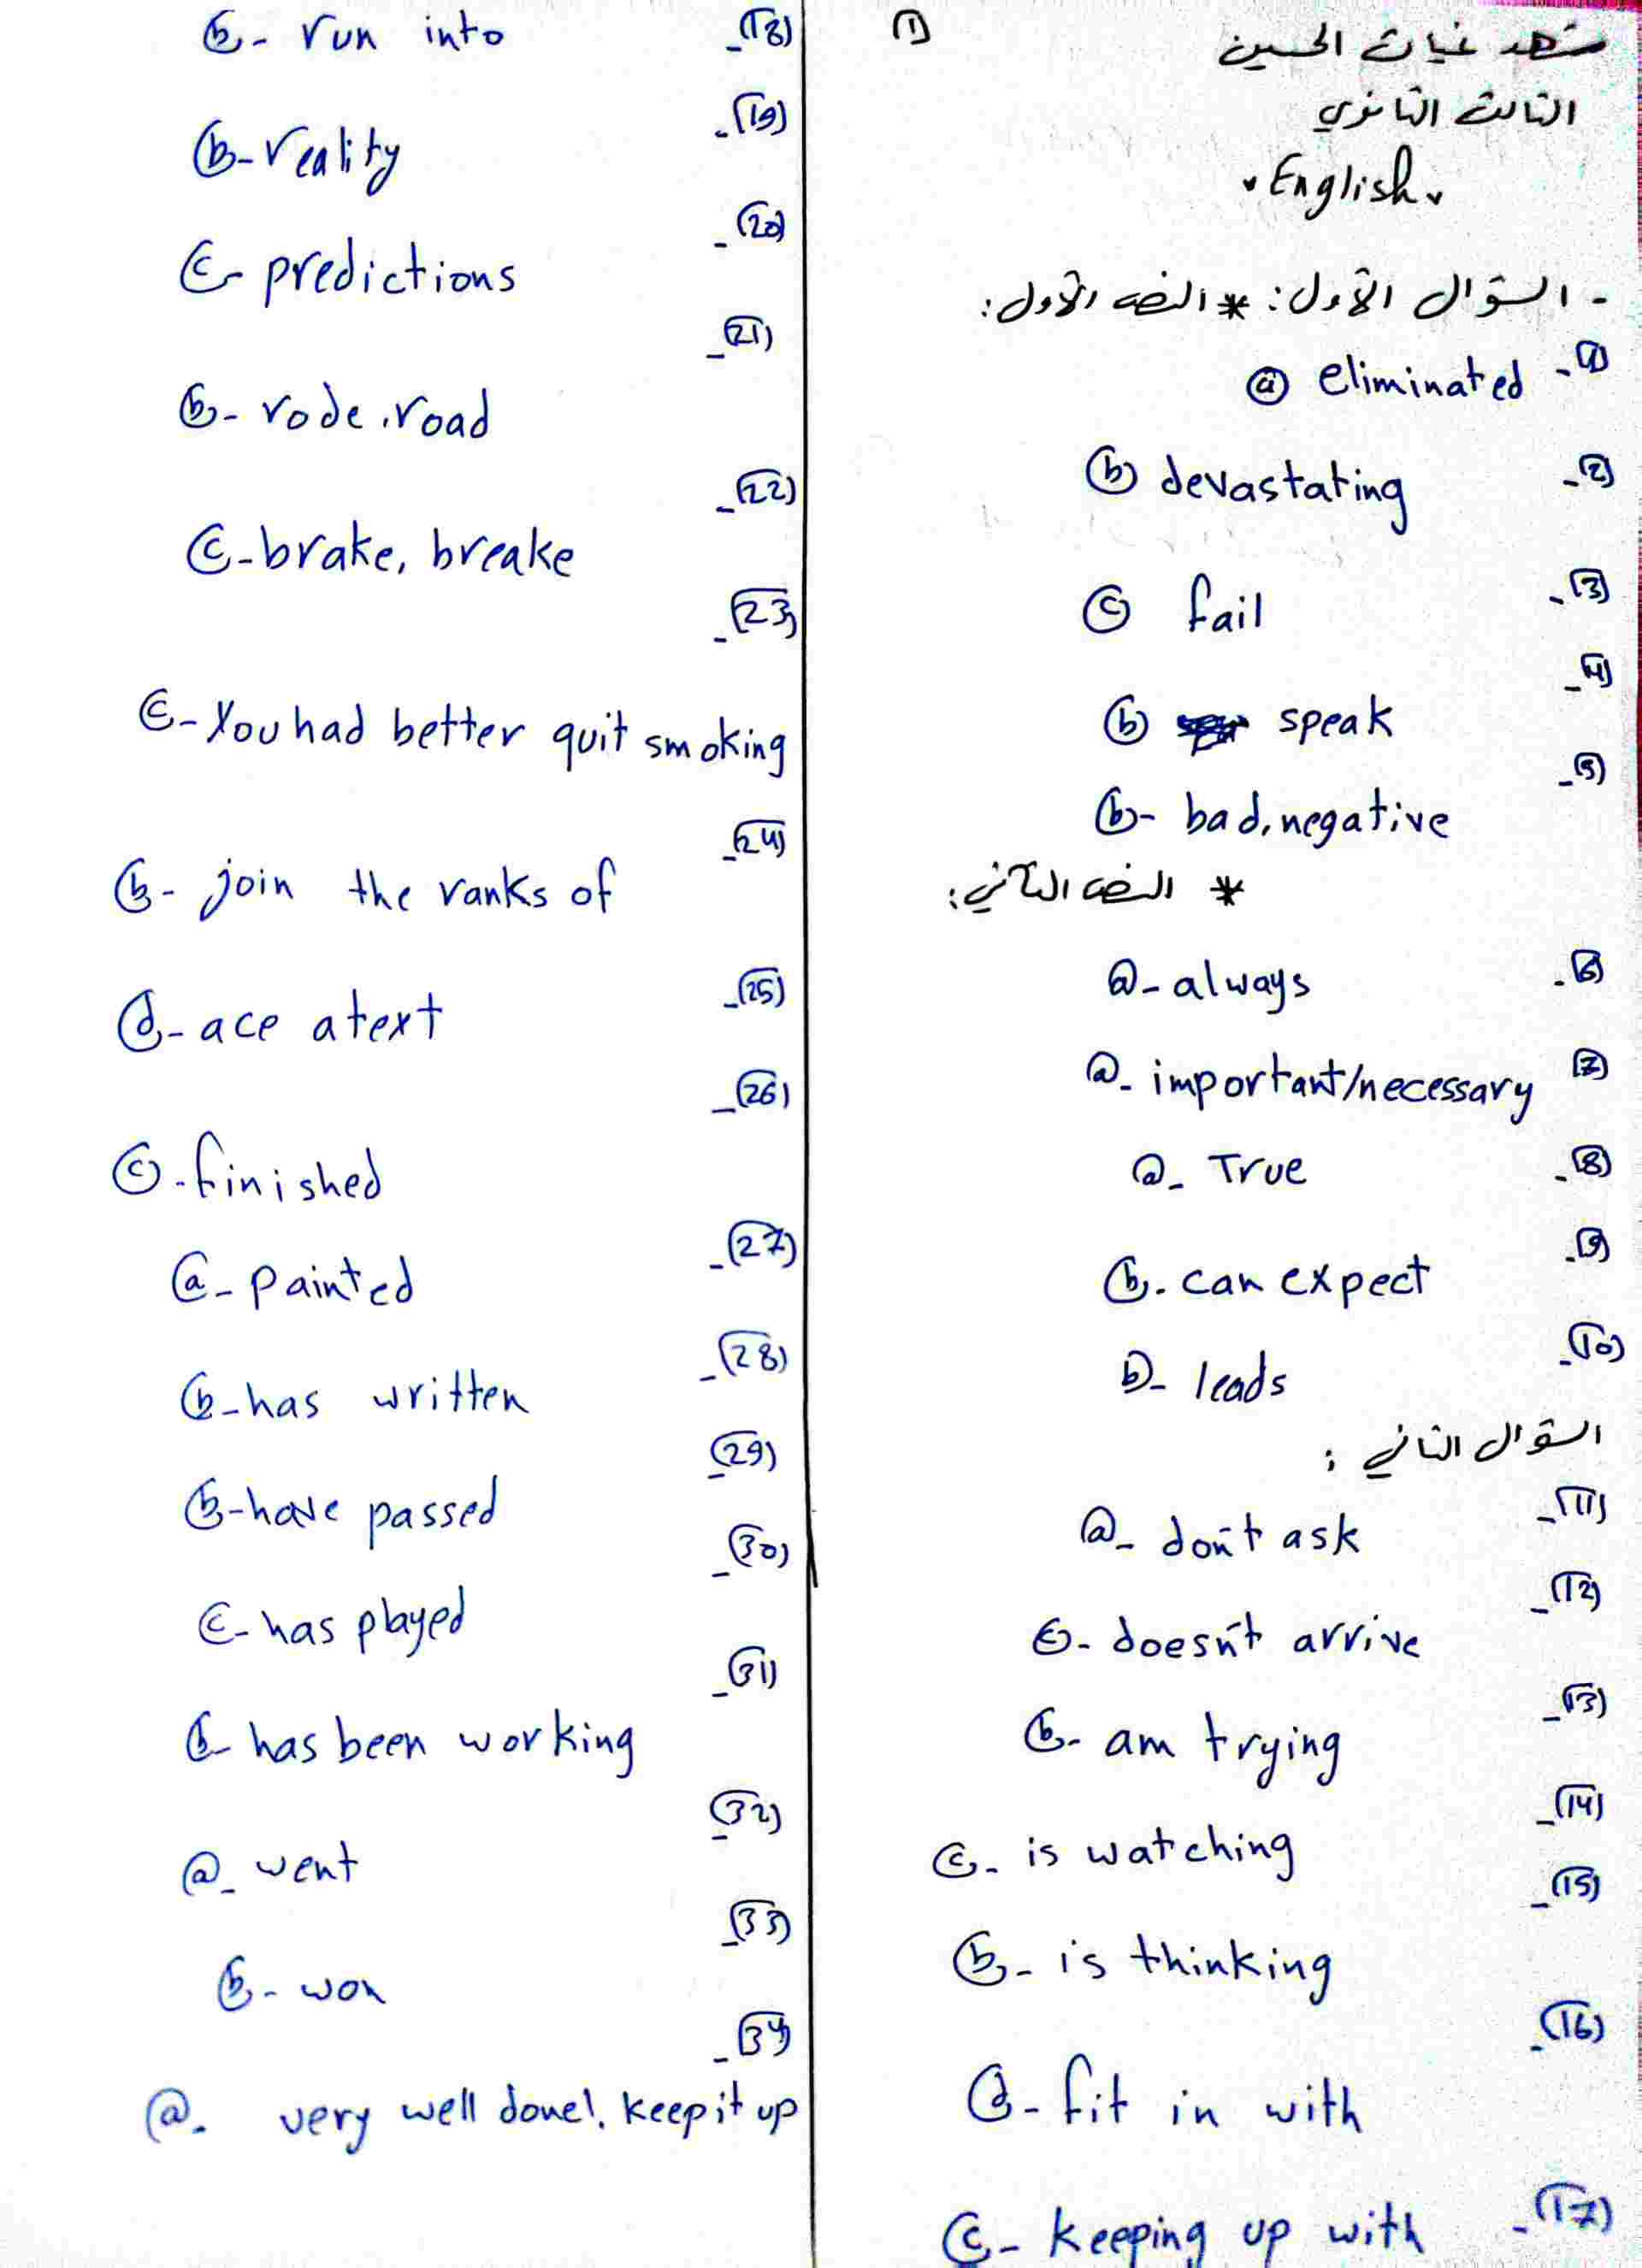 (1)
شهد غياث الحسين
الثالث الثانوي
English
- السؤال الأول: * النص الأول:
1)- a eliminated
2)- b devastating
3)- c fail
4)- b speak
5)- b- bad, negative
* النص الثاني:
6)- a- always
7) a- important/necessary
8)- a- True
9)- b- can expect
10)- b- leads
السؤال الثاني :
11)- a- don't ask
12)- c- doesn't arrive
13)- b- am trying
14)- c- is watching
15)- b- is thinking
16)- d- fit in with
17)- c- keeping up with
18)- b- run into
19)- b- reality
20)- c- predictions
21)- b- rode, road
22)- c- brake, breake
23)- c- You had better quit smoking
24)- b- join the ranks of
25)- d- ace a text
26)- c- finished
27)- a- painted
28)- b- has written
29)- b- have passed
30)- c- has played
31)- b- has been working
32)- a- went
33)- b- won
34)- a- very well done!, keep it up